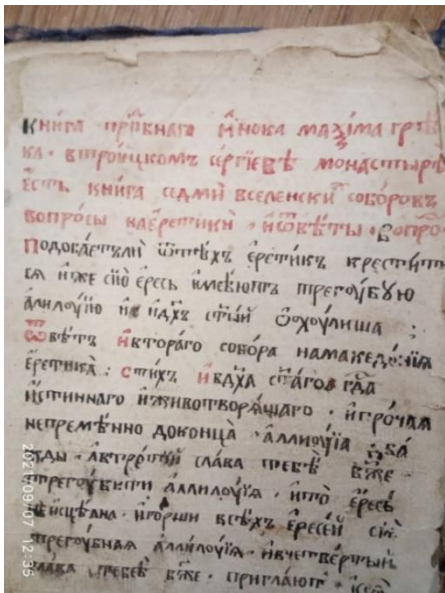 кни́га прпⷣбнаго и́нока маѯи́ма гре
ка · втро́ицкомъ се́ргїевѣ монастырѣ
е́сть кни́га седми́ вселенски собо́ровъ
вопро́сы наере́тики · иѿвѣ́ты · вопро
Подоба́етъли ѿтѣ́хъ е́ретикъ крести́т
ся и́же сїю е́ресь име́ютъ трегоу́бую
а́ллилоу́їю
Ѿвѣ́тъ и҆втора́го собо́ра намакедо́нїя
е́ретика̀ : сти́хъ и҆вдх҃а ст҃а́гоⷭ гдⷭ҇а
и́стиннаго и҆животворя́щаго · и҆про́чая
непремѣ́нно доконца̀ · а҆ллилоу́їа два́
жды · а҆втре́тий сла́ва тебѣ̀ бж҃е ·
трегоу́бити а́ллилоу́їя · и҆то е́ресь
неисцѣ́лна · иго́рши всѣ́хъ е́ресей сїѐ
трегоу́бная а҆ллилоу́їя · и҆вчетве́ртый
сла́ва тебѣ̀ бж҃е · приглаⷮ
2021/09/07 12:35